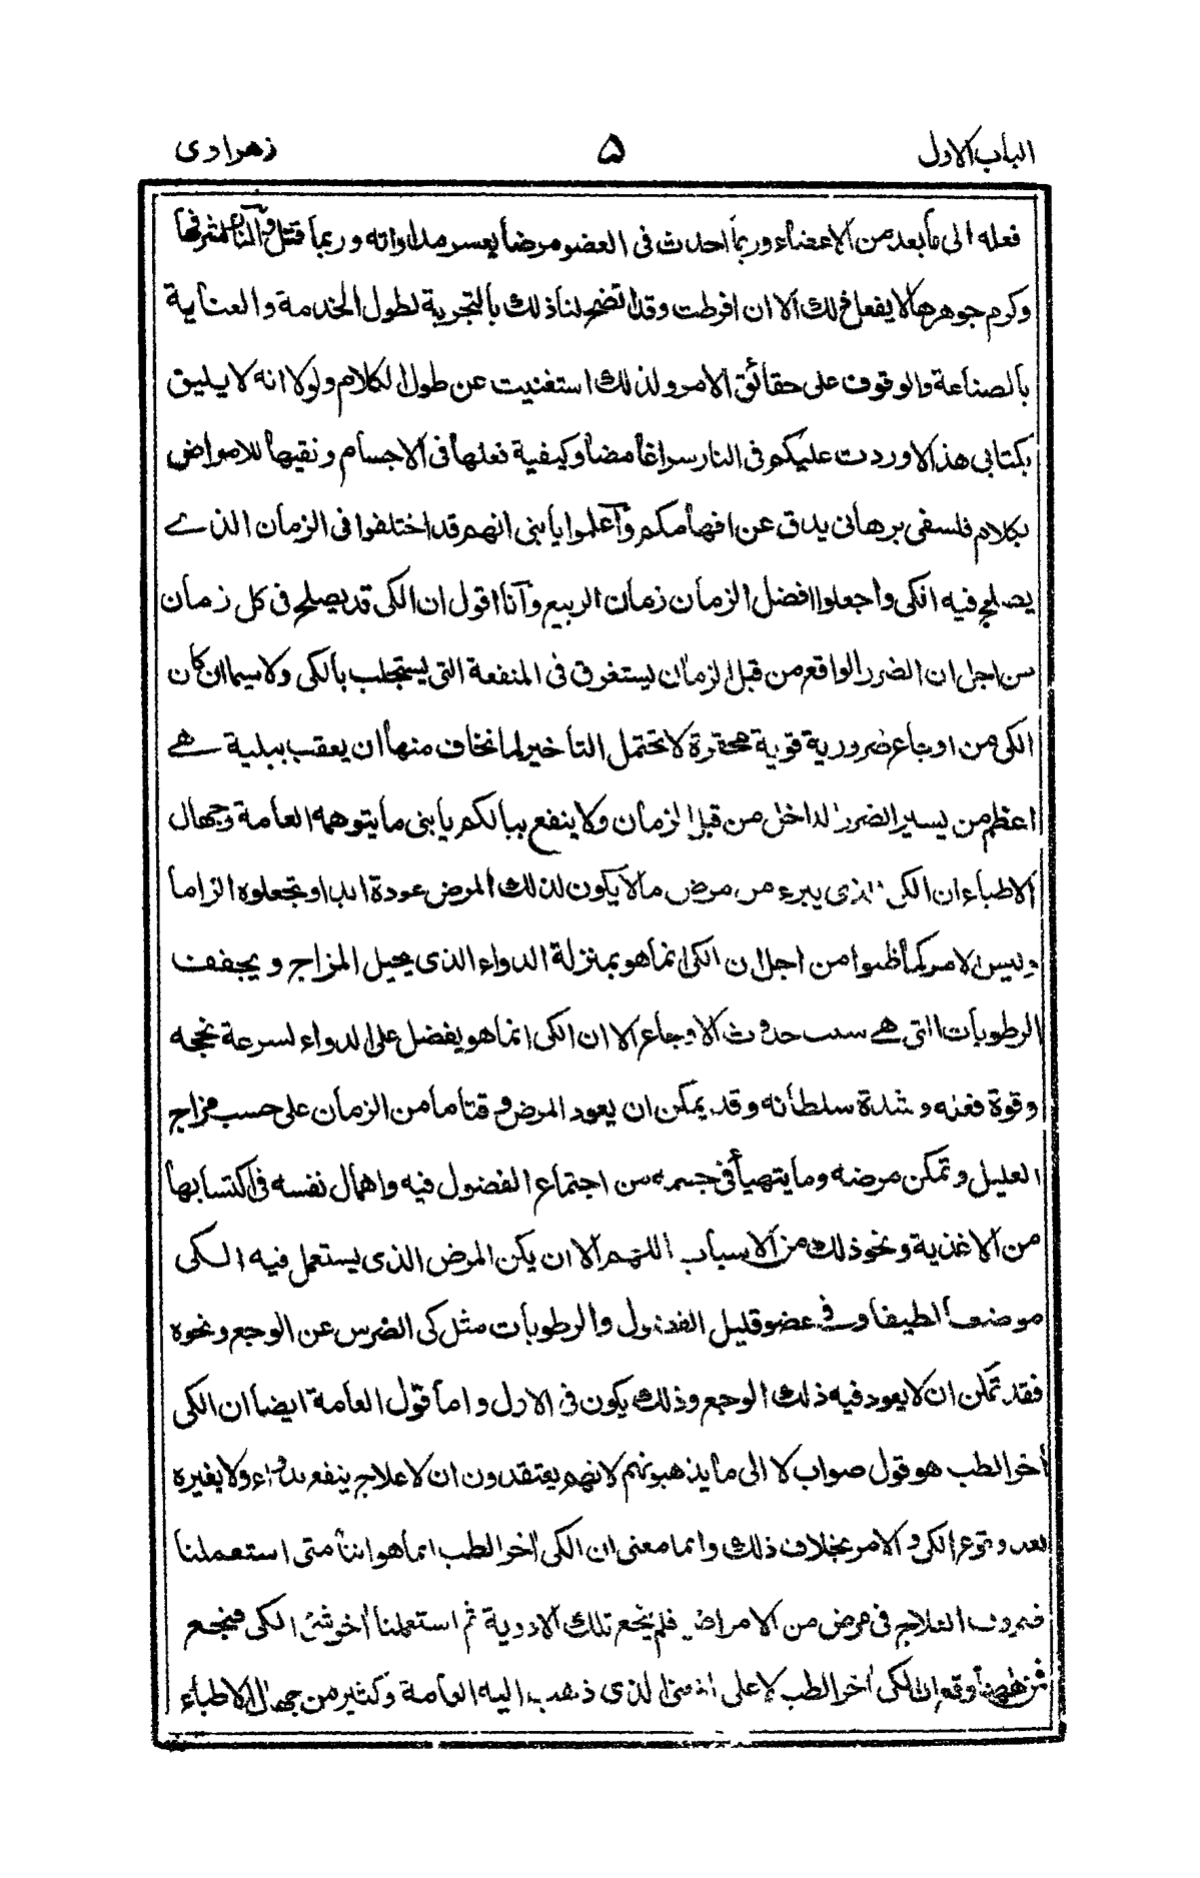 الباب الاول ۵ زهراوى
فعله الى ما بعد من الاعضاء وربما احدث فى العضو مرضا يعسر مداواته وربما قتل والنار لشرفها
وكرم جوهرها لا يفعل ذلك الا ان افرطت وقد اتضح لنا ذلك بالتجربة لطول الخدمة والعناية
بالصناعة والوقوف على حقائق الامر ولذلك استغنيت عن طول الكلام ولولا انه لا يليق
بكتابى هذا لاوردت عليكم فى النار سرا غامضا وكيفية فعلها فى الاجسام ونفيها للامراض
بكلام فلسفى برهانى يدق عن افهامكم وآعلموا يا بنى انهم قد اختلفوا فى الزمان الذے
يصلح فيه الكى واجعلوا افضل الزمان زمان الربيع وآنا اقول ان الكى قد يصلح فى كل زمان
من اجل ان الضرر الواقع من قبل الزمان يستغرق فى المنفعة التى يستجلب بالكى ولا سيما ان كان
الكى من اوجاع ضرورية قوية محقرة لا تحتمل التأخير لما نخاف منها ان يعقب ببلية هے
اعظم من يسير الضرر الداخل من قبل الزمان ولا ينفع ببالكم يا بنى ما يتوهمه العامة وجهال
الاطباء ان الكى الذى يبرء من مرض ما لا يكون لذلك المرض عودة ابدا وتجعلوه الزاما
وليس الامر كما ظنوا من اجل ان الكى انما هو بمنزلة الدواء الذى يحيل المزاج ويجفف
الرطوبات التى هے سبب حدوث الاوجاع الا ان الكى انما هو يفضل على الدواء لسرعة نجحه
وقوة فعله وشدة سلطانه وقد يمكن ان يعود المرض وقتا ما من الزمان على حسب مزاج
العليل وتمكن مرضه وما يتهيأ فى جسمه من اجتماع الفضول فيه واهمال نفسه فى اكتسابها
من الاغذية ونحو ذلك من الاسباب اللهم الا ان يكن المرض الذى يستعمل فيه الكى
موضعا لطيفا وفے عضو قليل الفضول والرطوبات مثل كى الضرس عن الوجع ونحوه
فقد تمكن ان لا يعود فيه ذلك الوجع وذلك يكون فى الاول واما قول العامة ايضا ان الكى
أخر الطب هو قول صواب لا الى ما يذهبونهم لانهم يعتقدون ان لا علاج ينفع بدواء ولا بغيره
بعد وقوع الكى والامر بخلاف ذلك وانما معنى ان الكى أخر الطب انما هو اننا متى استعملنا
ضروب العلاج فى مرض من الامراض فلم ينجع تلك الادوية ثم استعملنا أخر شئ الكى فينجع
فمن ههنا وقع ان الكى أخر الطب لا على المعنى الذى ذهب اليه العامة وكثير من جهال الاطباء